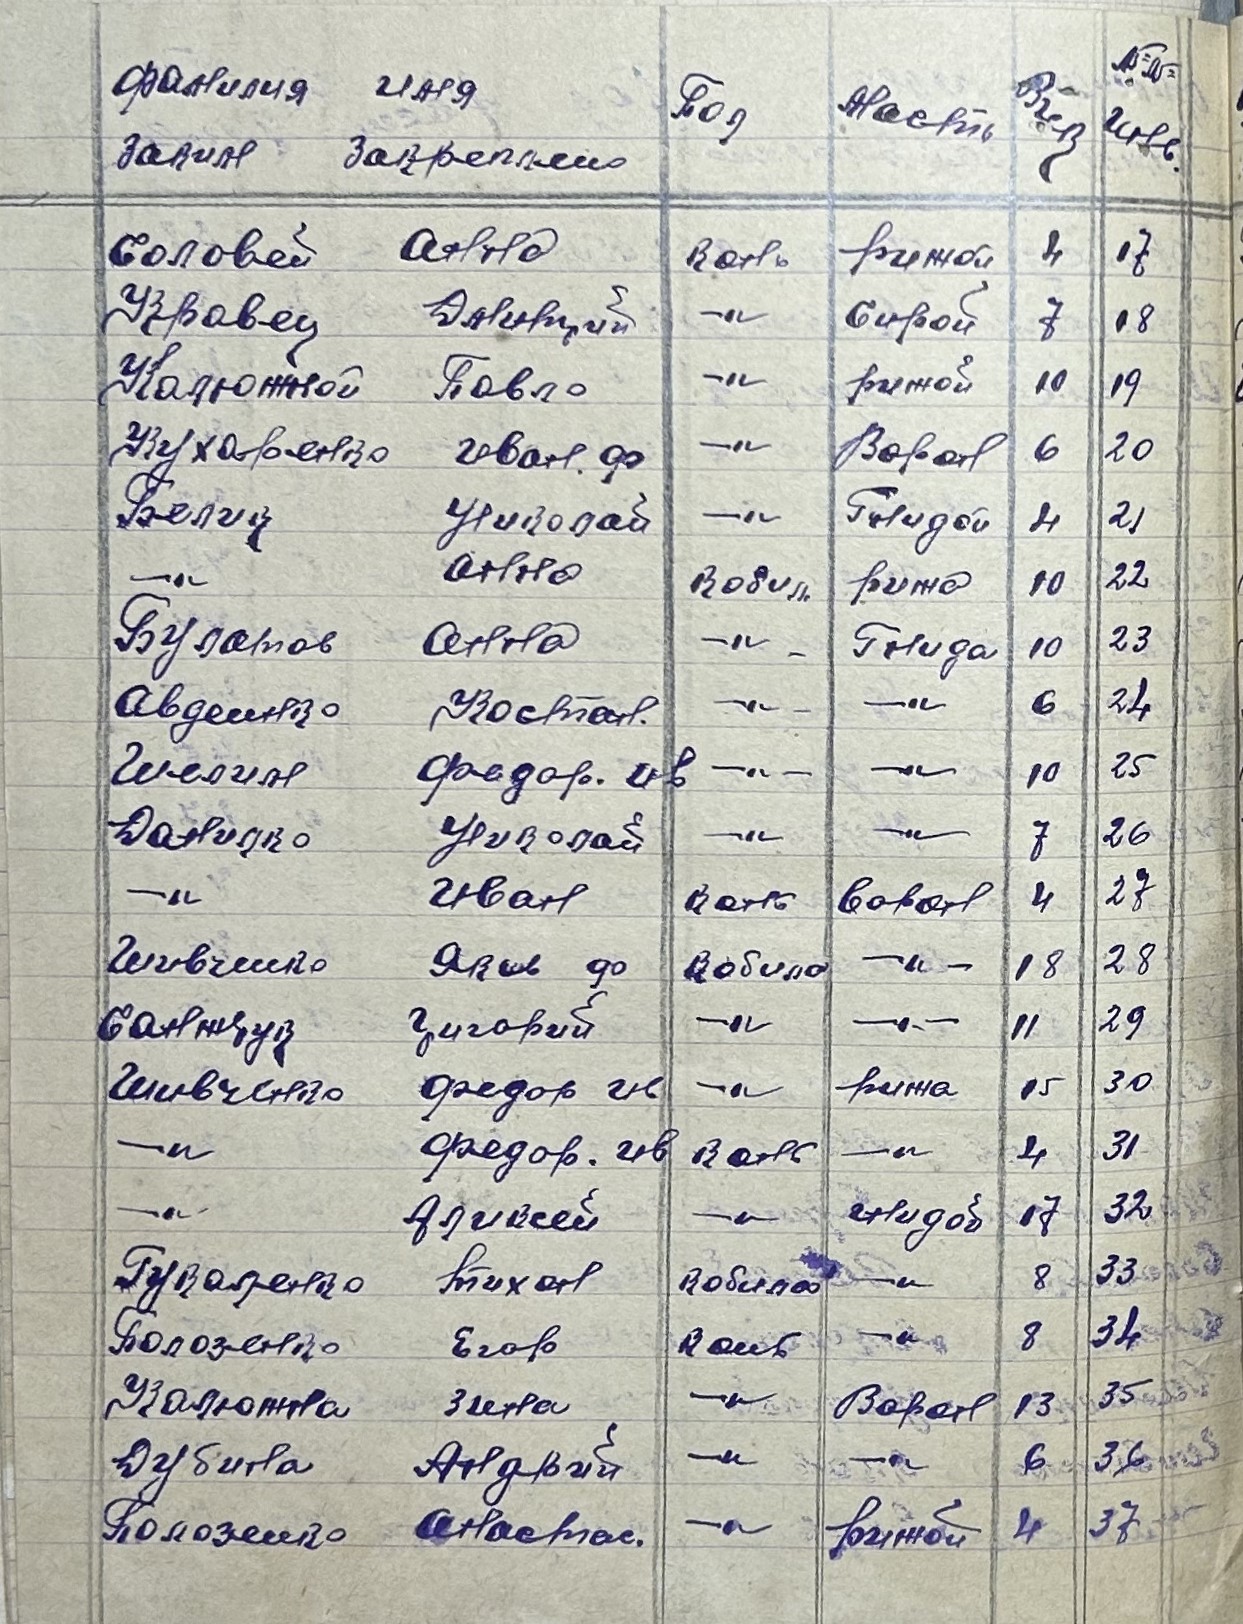 Фамилия имя Пол Масть Воз №=№=
За ким закреплено Инв.
Соловей Анна конь рижой 4 17
Кравец Дмитрий —"— Сирой 7 18
Калюжной Павло —"— рижой 10 19
Кухаренко Иван. Ф —"— Воран 6 20
Белик Николай —"— Гнидой 4 21
—"— Анна кобил. рижа 10 22
Булатов Анна —"— Гнида 10 23
Авдеенко Костан. —"— —"— 6 24
Шелин Федор. Ив —"— —"— 10 25
Данилко Николай —"— —"— 7 26
—"— Иван конь Воран 4 27
Шивченко Яков Ф кобила —"— 18 28
Санжчук Григорий —"— —"— 11 29
Шивченко Федор Ив —"— рижа 15 30
—"— Федор. Ив конь —"— 4 31
—"— Аликсей —"— гнидой 17 32
Тихон кобила —"— 8 33
Полозенко Егор конь —"— 8 34
Калюжна Зина —"— Воран 13 35
Дубина Андрий —"— —"— 6 36
Полозенко Анастас. —"— рижой 4 37